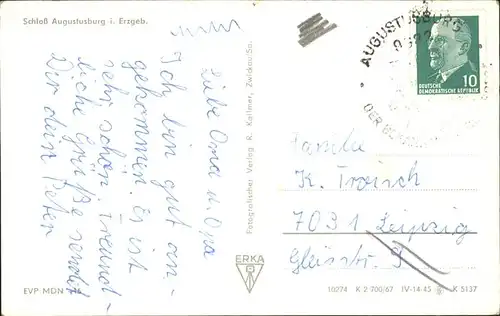 Schloß Augustusburg i. Erzgeb.
Liebe Oma u. Opa
Ich bin gut an-
gekommen. Es ist
sehr schön. Freund-
liche Grüße sendet
Dir dein Peter
EVP MDN
Fotografischer Verlag R. Kallmer, Zwickau/Sa.
ERKA
AUGUSTUSBURG
DEUTSCHE
DEMOKRATISCHE REPUBLIK
10
Familie
K. Troisch
7031 Leipzig
Gleisstr. 9
10274 K 2 700/67 IV-14-45 K 5137